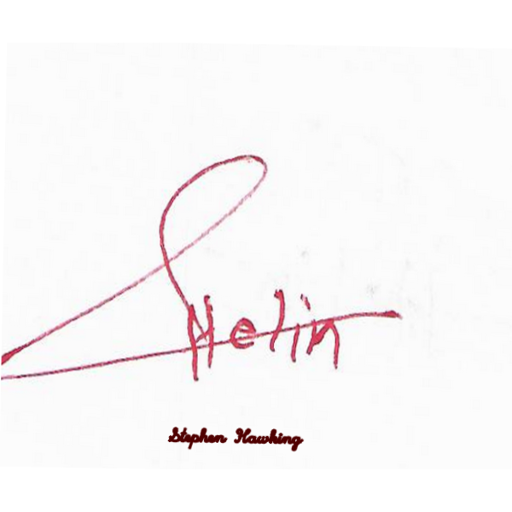 Helin
Stephen Hawking